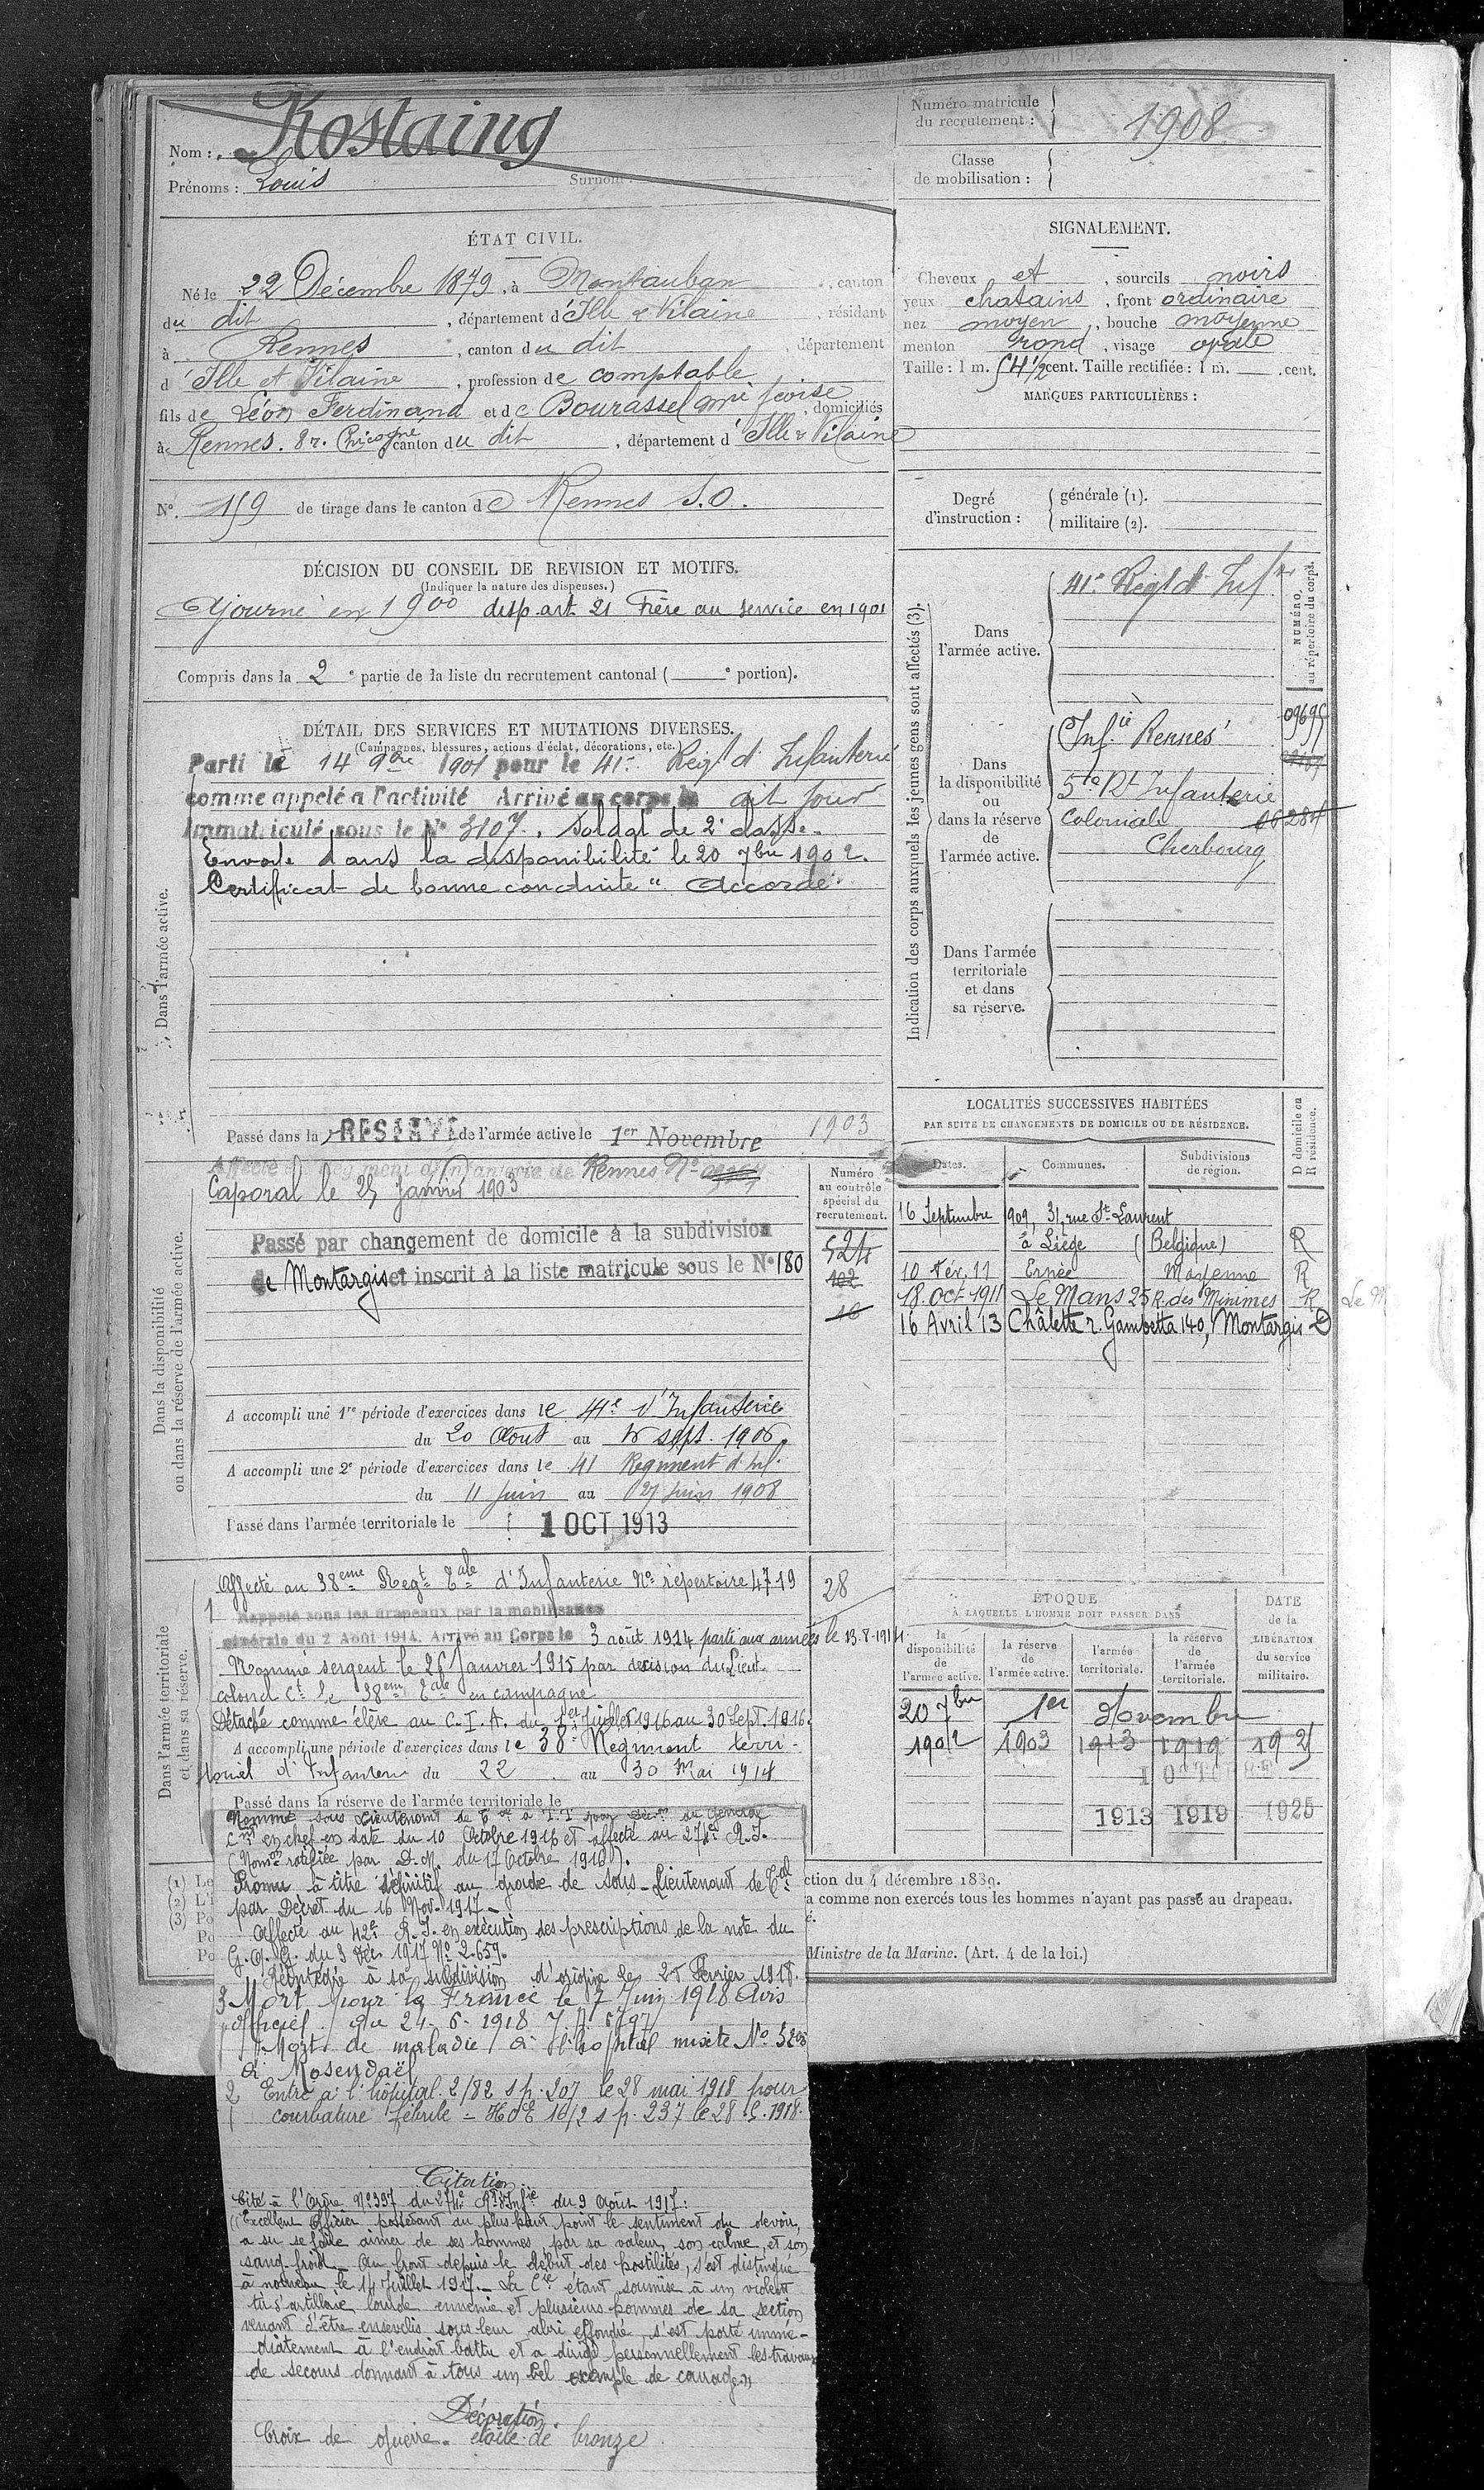 Nom : Rostaing
Prénoms : Louis Surnom :
Numéro matricule du recrutement : 1908
Classe de mobilisation :
ÉTAT CIVIL.
Né le 22 Décembre 1879, à Montauban, canton
du dit, département d'Ille & Vilaine, résidant
à Rennes, canton du dit, département
d'Ille et Vilaine, profession de comptable
fils de Léon Ferdinand et de Bourassel Mie fcoise, domiciliés
à Rennes. 8 r. Chicogné, canton du dit, département d'Ille & Vilaine
N° 159 de tirage dans le canton de Rennes S.O.
SIGNALEMENT.
Cheveux et, sourcils noirs
yeux chatains, front ordinaire
nez moyen, bouche moyenne
menton rond, visage ovale
Taille : 1 m. 54 1/2 cent. Taille rectifiée : 1 m. cent.
MARQUES PARTICULIÈRES :
Degré d'instruction : générale (1).
militaire (2).
DÉCISION DU CONSEIL DE REVISION ET MOTIFS.
(Indiquer la nature des dispenses.)
Ajourné en 1900 disp. art. 21 Frère au service en 1901
Compris dans la 2e partie de la liste du recrutement cantonal ( e portion).
DÉTAIL DES SERVICES ET MUTATIONS DIVERSES.
(Campagnes, blessures, actions d'éclat, décorations, etc.)
Dans l'armée active.
Parti le 14 9bre 1901 pour le 41e Régt d'Infanterie
comme appelé à l'activité Arrivé au corps le dit jour
Immatriculé sous le N° 3107. Soldat de 2e classe.
Envoyé dans la disponibilité le 20 7bre 1902.
Certificat de bonne conduite "Accordé"
Passé dans la RÉSERVE de l'armée active le 1er Novembre 1903
Indication des corps auxquels les jeunes gens sont affectés (3).
NUMÉRO au répertoire du corps.
Dans l'armée active.
41e Régt d'Inf
Dans la disponibilité ou dans la réserve de l'armée active.
Infie Rennes
5e Rt Infanterie
Coloniale 06284
Cherbourg
Dans l'armée territoriale et dans sa réserve.
Dans la disponibilité ou dans la réserve de l'armée active.
Affecté au Régiment d'Infanterie de Rennes N°
Caporal le 25 Janvier 1903
Passé par changement de domicile à la subdivision
de Montargis et inscrit à la liste matricule sous le N° 180
Numéro au contrôle spécial du recrutement.
524
102
16
A accompli une 1re période d'exercices dans le 41e d'Infanterie
du 20 Aout au 16 sept. 1906.
A accompli une 2e période d'exercices dans le 41 Régiment d'Inf.
du 11 Juin au 27 Juin 1908
Passé dans l'armée territoriale le 1 OCT 1913
LOCALITÉS SUCCESSIVES HABITÉES
PAR SUITE DE CHANGEMENTS DE DOMICILE OU DE RÉSIDENCE.
Dates. Communes. Subdivisions de région. D domicile ou R résidence.
16 Septembre 1909, 31, rue St Laurent
à Liège (Belgique) R
10 Fév. 11 Ernée Mayenne R
18 Oct 1911 Le Mans 25 R. des Minimes R
16 Avril 13 Châlette r. Gambetta 140, Montargis D
Dans l'armée territoriale et dans sa réserve.
Affecté au 38eme Regt Tale d'Infanterie N° répertoire 4719
28
Rappelé sous les drapeaux par la mobilisation
générale du 2 Août 1914. Arrivé au Corps le 3 août 1914 parti aux armées le 13-8-1914.
Nommé sergent le 26 Janvier 1915 par décision du Lieut.
colonel Ct le 38eme Tale en campagne
Détaché comme élève au C.I.A. du 1er Juillet 1916 au 30 Sept. 1916.
A accompli une période d'exercices dans le 38e Régiment terri-
torial d'Infanterie du 22 au 30 Mai 1914
Passé dans la réserve de l'armée territoriale le
ÉPOQUE À LAQUELLE L'HOMME DOIT PASSER DANS
la disponibilité de l'armée active. la réserve de l'armée active. l'armée territoriale. la réserve de l'armée territoriale.
DATE de la LIBÉRATION du service militaire.
20 7bre 1er Novembre
1902 1903 1913 1919 192
1 OCTOBRE
1913 1919 1925
Nommé sous Lieutenant de Tale à T.T par décon du Général
Cmt en chef en date du 10 Octobre 1916 et affecté au 274e R.I.
(Nomon ratifiée par D.M. du 17 Octobre 1916).
Promu à titre définitif au grade de sous-Lieutenant de Tal
par Décret du 16 Nov. 1917.
Affecté au 42e R.I. en exécution des prescriptions de la note du
G.Q.G. du 3 Déc. 1917 N° 2.659.
Réintégré à sa subdivision d'origine le 25 Février 1918.
3 Mort pour la France le 7 Juin 1918 Avis
officiel du 24-6-1918
Mort de maladie à l'hôpital mixte N°
à Rosendaël
2 Entré à l'hôpital 2/82 s p. 207 le 28 mai 1918 pour
courbature fébrile = HOE 16/2 s p. 237 le 28.5.1918.
(1) Le
(2) L'i
(3) Po
Po
Po
ction du 4 décembre 1889.
a comme non exercés tous les hommes n'ayant pas passé au drapeau.
é.
Ministre de la Marine. (Art. 4 de la loi.)
Citation
Cité à l'Ordre N° 397 du 274e Rt d'Infie du 9 Août 1917 :
"Excellent Officier possédant au plus haut point le sentiment du devoir,
a su se faire aimer de ses hommes par sa valeur, son calme, et son
sang-froid. Au front depuis le début des hostilités, s'est distingué
à nouveau le 14 Juillet 1917. La Cie étant soumise à un violent
tir d'artillerie lourde ennemie et plusieurs hommes de sa section
venant d'être ensevelis sous leur abri effondré, s'est porté immé-
diatement à l'endroit battu et a dirigé personnellement les travaux
de secours donnant à tous un bel exemple de courage."
Décoration
Croix de guerre. étoile de bronze.